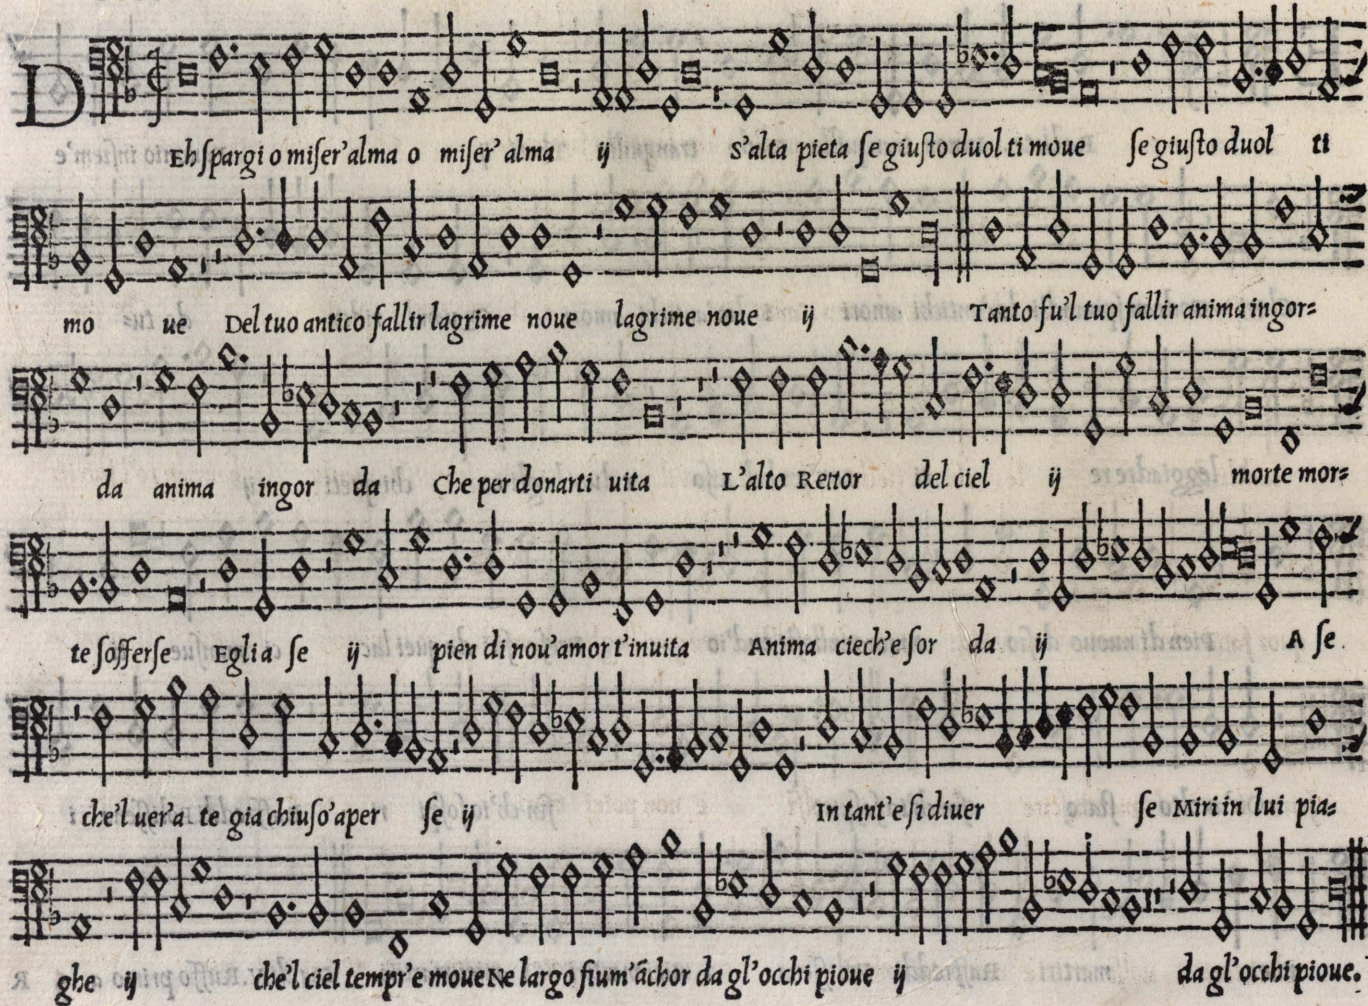 DEh spargi o miser'alma o miser'alma ij S'alta pieta se giusto duol ti moue se giusto duol ti
mo ue Del tuo antico fallir lagrime noue lagrime noue ij Tanto fu'l tuo fallir anima ingor=
da anima ingor da Che per donarti uita L'alto Rettor del ciel ij morte mor=
te sofferse Egli a se ij pien di nou'amor t'inuita Anima ciech'e sor da ij A se
che'l uer'a te gia chiuso'aper se ij In tant'e si diuer se Miri in lui pia=
ghe ij che'l ciel tempr'e moue Ne largo fium'āchor da gl'occhi pioue ij da gl'occhi pioue.